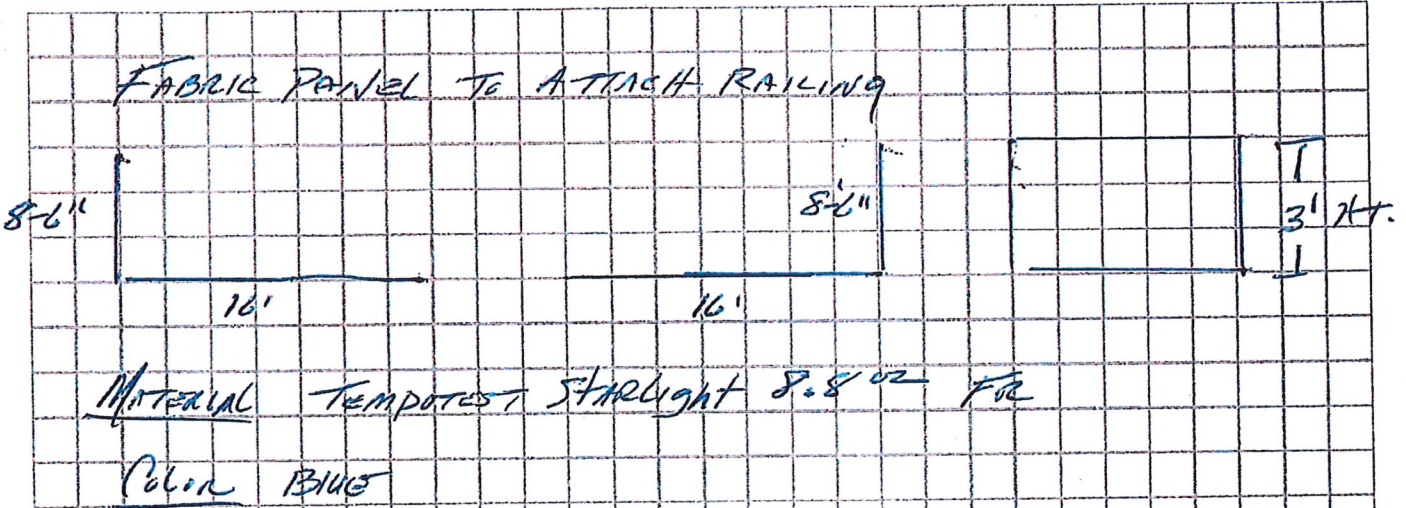 FABRIC PANEL TO ATTACH RAILING
8-6"
8'-6"
3' HT.
16'
16'
MATERIAL TEMPOTEST STARLIGHT 8.8 OZ FR
COLOR BLUE